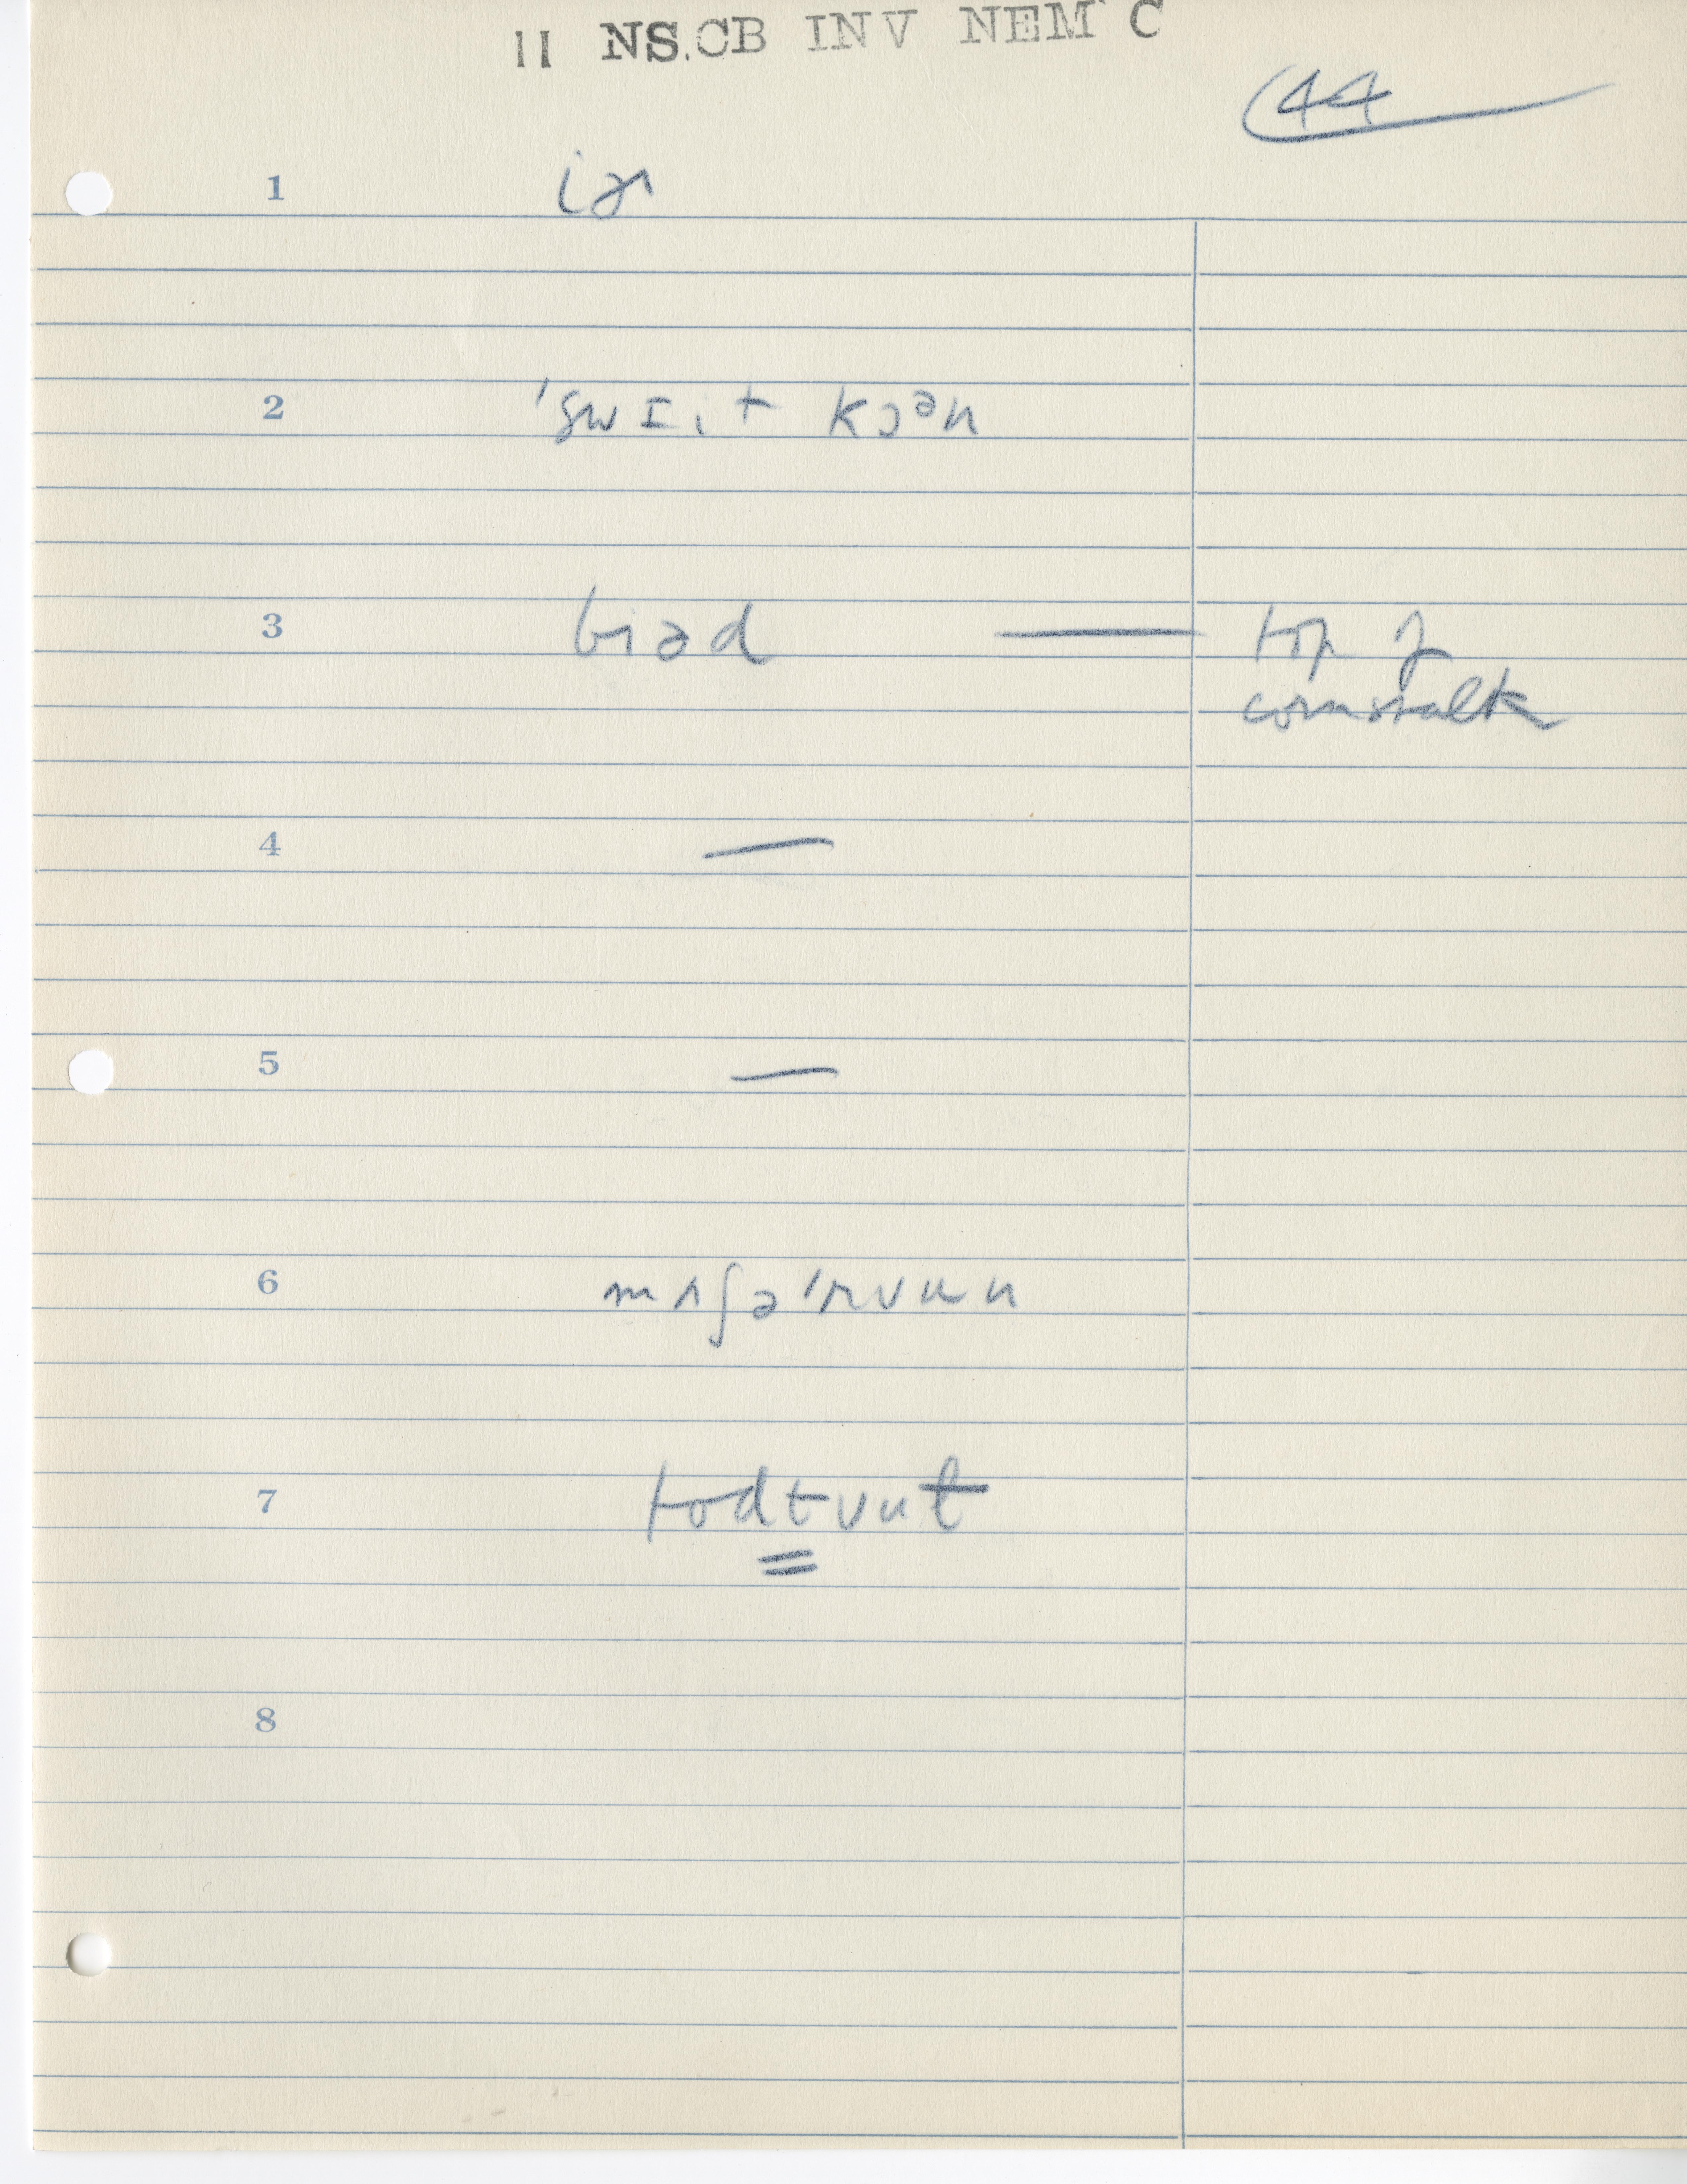 11 NS.CB INV NEM C
44
1 iɚ
2 ˈswɪit kɔᵊn
3 biəd — top of
cornstalk
4 —
5 —
6 mʌʃəˈrʊun
7 todtʊut
8